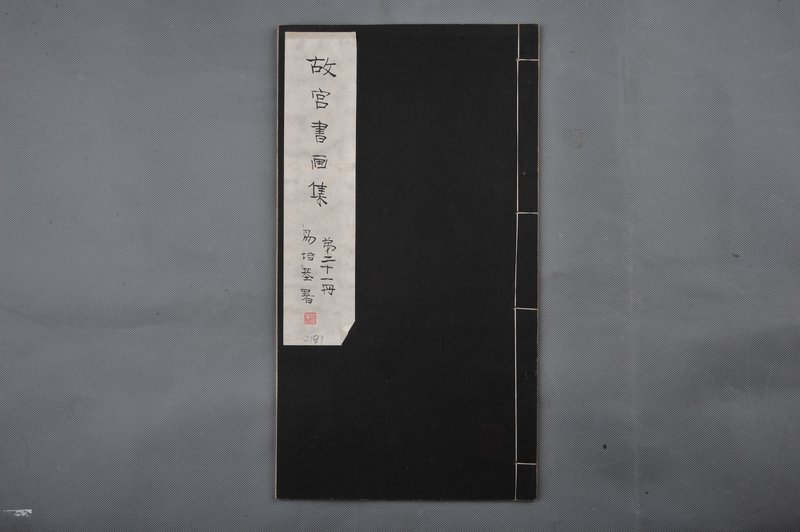 故宫書画集
第二十一冊
易培基署
2197